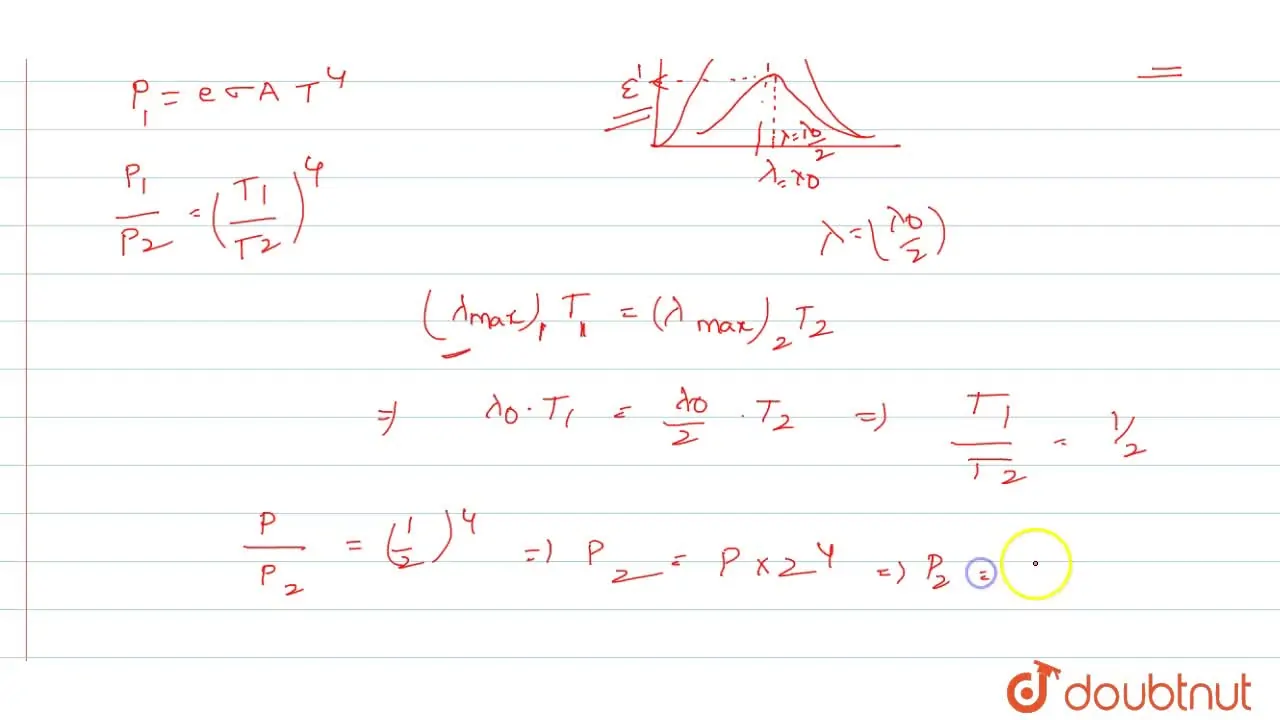 P₁ = e σ A T⁴
ε'
λ = λ0/2
λ = x0
P₁/P₂ = (T₁/T₂)⁴
λ = (λ0/2)
(λmax)₁ T₁ = (λ max)₂ T₂
⇒ λ0 · T₁ = λ0/2 · T₂ ⇒ T₁/T₂ = 1/2
P/P₂ = (1/2)⁴ ⇒ P₂ = P × 2⁴ ⇒ P₂ =
doubtnut